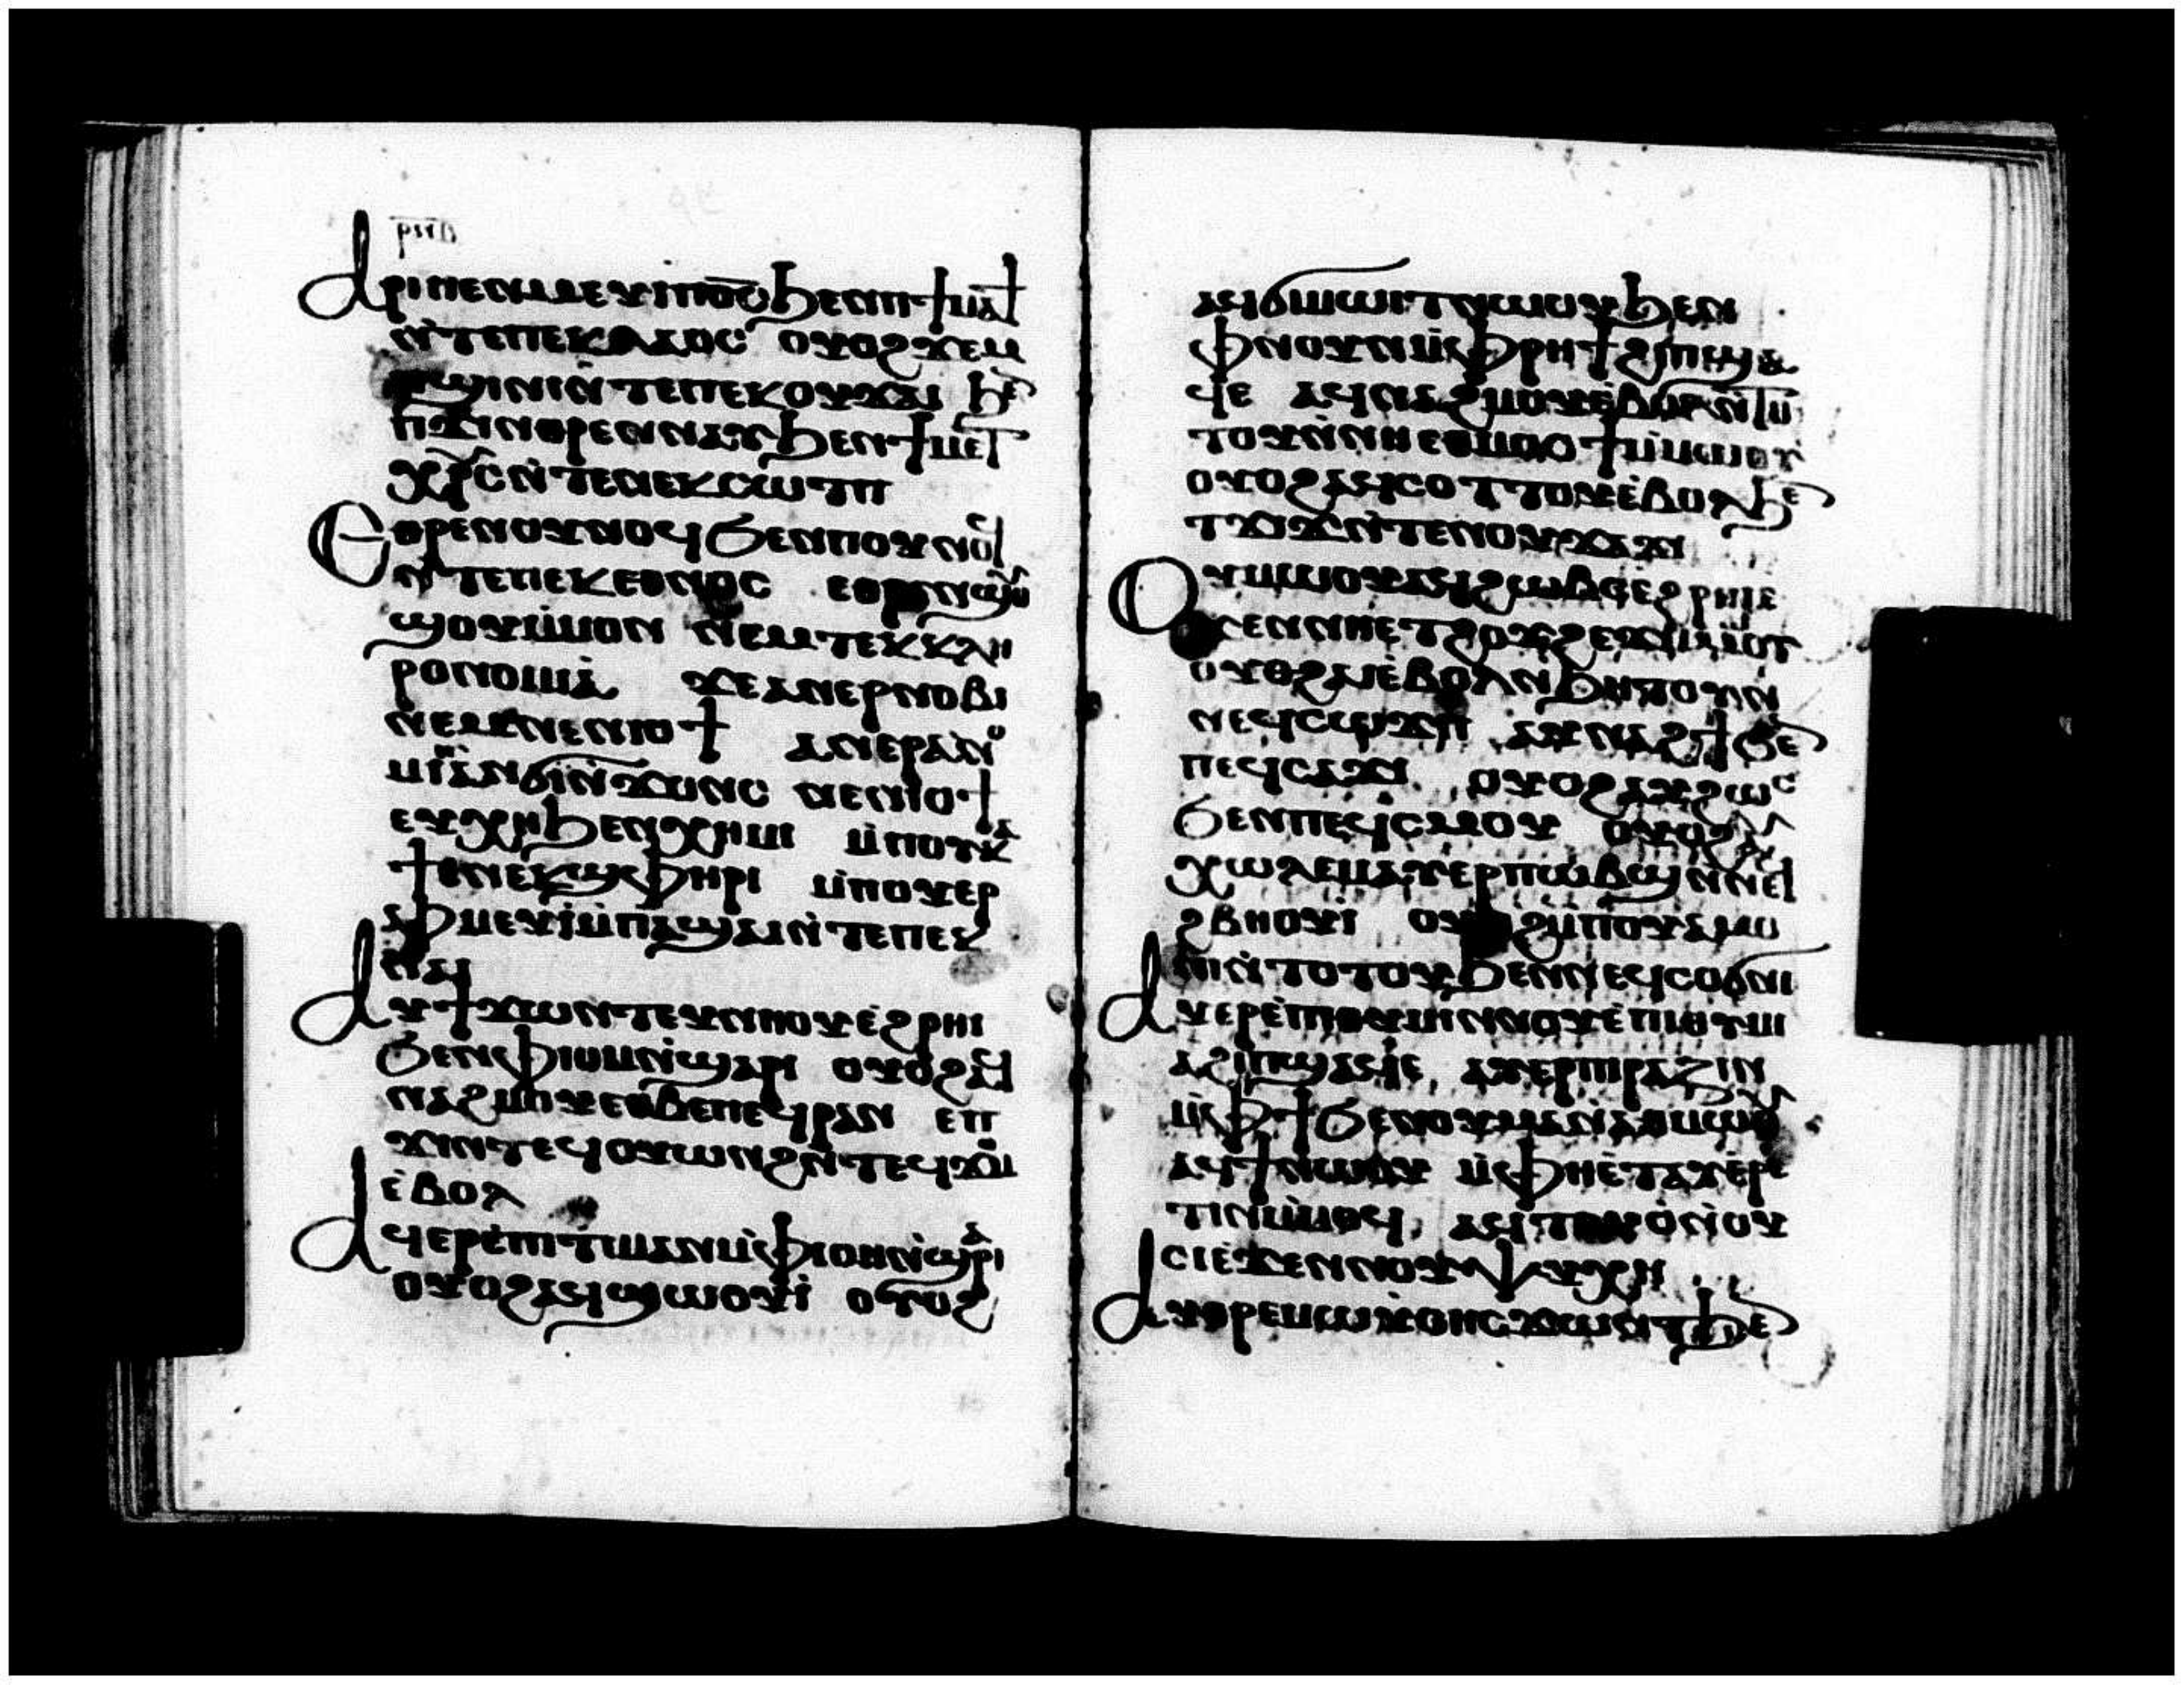 ⲁⲣⲓⲡⲉⲛⲙⲉⲩⲓ̀ ⲡϭ̅ⲥ̅ ϧⲉⲛⲡϯⲙⲁϯ
ⲛ̀ⲧⲉⲡⲉⲕⲗⲁⲟⲥ ⲟⲩⲟϩ ϫⲉⲙ
ⲡϣⲓⲛⲓ ⲛ̀ⲧⲉⲡⲉⲕⲟⲩϫⲁⲓ ϧⲉⲛ
ⲡϫⲓⲛⲑⲣⲉⲛⲛⲁⲩ ϧⲉⲛϯⲙⲉⲧ
ⲭⲣ̅ⲥ ⲛ̀ⲧⲉⲛⲉⲕⲥⲱⲧⲡ
ⲉⲑⲣⲉⲛⲟⲩⲛⲟϥ ϧⲉⲛⲡⲟⲩⲛⲟϥ
ⲛ̀ⲧⲉⲡⲉⲕⲉⲑⲛⲟⲥ ⲉⲑⲣⲉⲛϣⲟⲩ
ϣⲟⲩ ⲙ̀ⲙⲟⲛ ⲛⲉⲙⲧⲉⲕⲕⲗⲏ
ⲣⲟⲛⲟⲙⲓⲁ̀ ϫⲉⲁⲛⲉⲣⲛⲟⲃⲓ
ⲛⲉⲙⲛⲉⲛⲓⲟϯ ⲁⲛⲉⲣⲁⲛⲟ
ⲙⲓⲁⲛϭⲓⲛ̀ϫⲟⲛⲥ ⲛⲉⲛⲓⲟϯ
ⲉⲩⲭⲏ ϧⲉⲛⲭⲏⲙⲓ ⲙ̀ⲡⲟⲩⲕⲁ
ϯ ⲉⲛⲉⲕϣⲫⲏⲣⲓ ⲙ̀ⲡⲟⲩⲉⲣ
ⲫⲙⲉⲩⲓ̀ ⲙ̀ⲡⲁϣⲁⲓ ⲛ̀ⲧⲉⲡⲉⲕ
ⲛⲁⲓ
ⲁⲩϯϫⲱⲛⲧ ⲉⲩⲛⲏⲟⲩ ⲉ̀ϩⲣⲏⲓ
ϧⲉⲛⲫⲓⲟⲙ ⲛ̀ϣⲁⲣⲓ ⲟⲩⲟϩ ⲁϥ
ⲛⲁϩⲙⲟⲩ ⲉⲑⲃⲉⲡⲉϥⲣⲁⲛ ⲉⲡ
ϫⲓⲛⲧⲉϥⲟⲩⲱⲛϩ ⲛ̀ⲧⲉϥϫⲟⲙ
ⲉ̀ⲃⲟⲗ
ⲁϥⲉⲣⲉⲡⲓⲧⲓⲙⲁⲛ ⲙ̀ⲫⲓⲟⲙ ⲛ̀ϣⲁⲣⲓ
ⲟⲩⲟϩ ⲁϥϣⲱⲟⲩⲓ̀ ⲟⲩⲟϩ
ⲁϥϭⲓⲙⲱⲓⲧ ⲛⲱⲟⲩ ϧⲉⲛ
ⲫⲛⲟⲩⲛ ⲙ̀ⲫⲣⲏϯ ϩⲓⲡϣⲁ
ϥⲉ ⲁϥⲛⲁϩⲙⲟⲩ ⲉ̀ⲃⲟⲗ
ⲧⲟⲩ ⲛ̀ⲛⲏⲉⲑⲙⲟⲥϯ ⲙ̀ⲙⲱⲟⲩ
ⲟⲩⲟϩ ⲁϥⲥⲟⲧⲧⲟⲩ ⲉ̀ⲃⲟⲗ ϧⲉⲛ
ⲧϫⲓϫ ⲛ̀ⲧⲉⲛⲟⲩϫⲁϫⲓ
ⲟⲩⲙⲱⲟⲩ ⲁϥϩⲱⲃⲥ ⲉϩⲣⲏⲓ ⲉ
ϫⲉⲛⲛⲏⲉⲧϩⲟϫϩⲉϫ ⲙ̀ⲙⲱⲟⲩ
ⲟⲩⲟϩ ⲁⲛⲉ̀ⲃⲟⲗ ⲛ̀ϧⲏⲧⲟⲩ ⲛ̀
ⲛⲉϥⲥⲱϫⲡ ⲁⲩⲛⲁϩϯ ϧⲉⲛ
ⲡⲉϥⲥⲁϫⲓ ⲟⲩⲟϩ ⲁⲩϩⲱⲥ
ϧⲉⲛⲡⲉϥⲥⲙⲟⲩ ⲟⲩⲟϩ ⲁⲩ
ⲭⲱⲗⲉⲙ ⲁⲩⲉⲣⲡⲱⲃϣ ⲛ̀ⲛⲉϥ
ϩⲃⲏⲟⲩⲓ̀ ⲟⲩⲟϩ ⲙ̀ⲡⲟⲩⲁⲙⲟ
ⲛⲓ ⲛ̀ⲧⲟⲧⲟⲩ ϧⲉⲛⲛⲉϥⲥⲟϭⲛⲓ
ⲁⲩⲉⲣⲉ̀ⲡⲓⲑⲩⲙⲓⲛ ⲛ̀ⲟⲩⲉ̀ⲡⲓⲑⲩⲙⲓ
ⲁ ϩⲓⲡϣⲁϥⲉ, ⲁⲩⲉⲣⲡⲓⲣⲁⲍⲓⲛ
ⲙ̀ⲫϯ ϧⲉⲛⲟⲩⲙⲁ ⲛ̀ⲁⲑⲙⲱⲟⲩ
ⲁϥϯ ⲛⲱⲟⲩ ⲙ̀ⲫⲏⲉ̀ⲧⲁⲩⲉ̀ⲣⲉ
ⲧⲓⲛ ⲙ̀ⲙⲟϥ, ⲁϥⲟⲩⲱⲣⲡ ⲛ̀ⲟⲩ
ⲥⲓ ⲉ̀ϫⲉⲛⲛⲟⲩⲯⲩⲭⲏ
ⲁⲩⲑⲣⲉⲙⲱⲩⲥⲏⲥ ϫⲱⲛⲧ ϧⲉⲛ